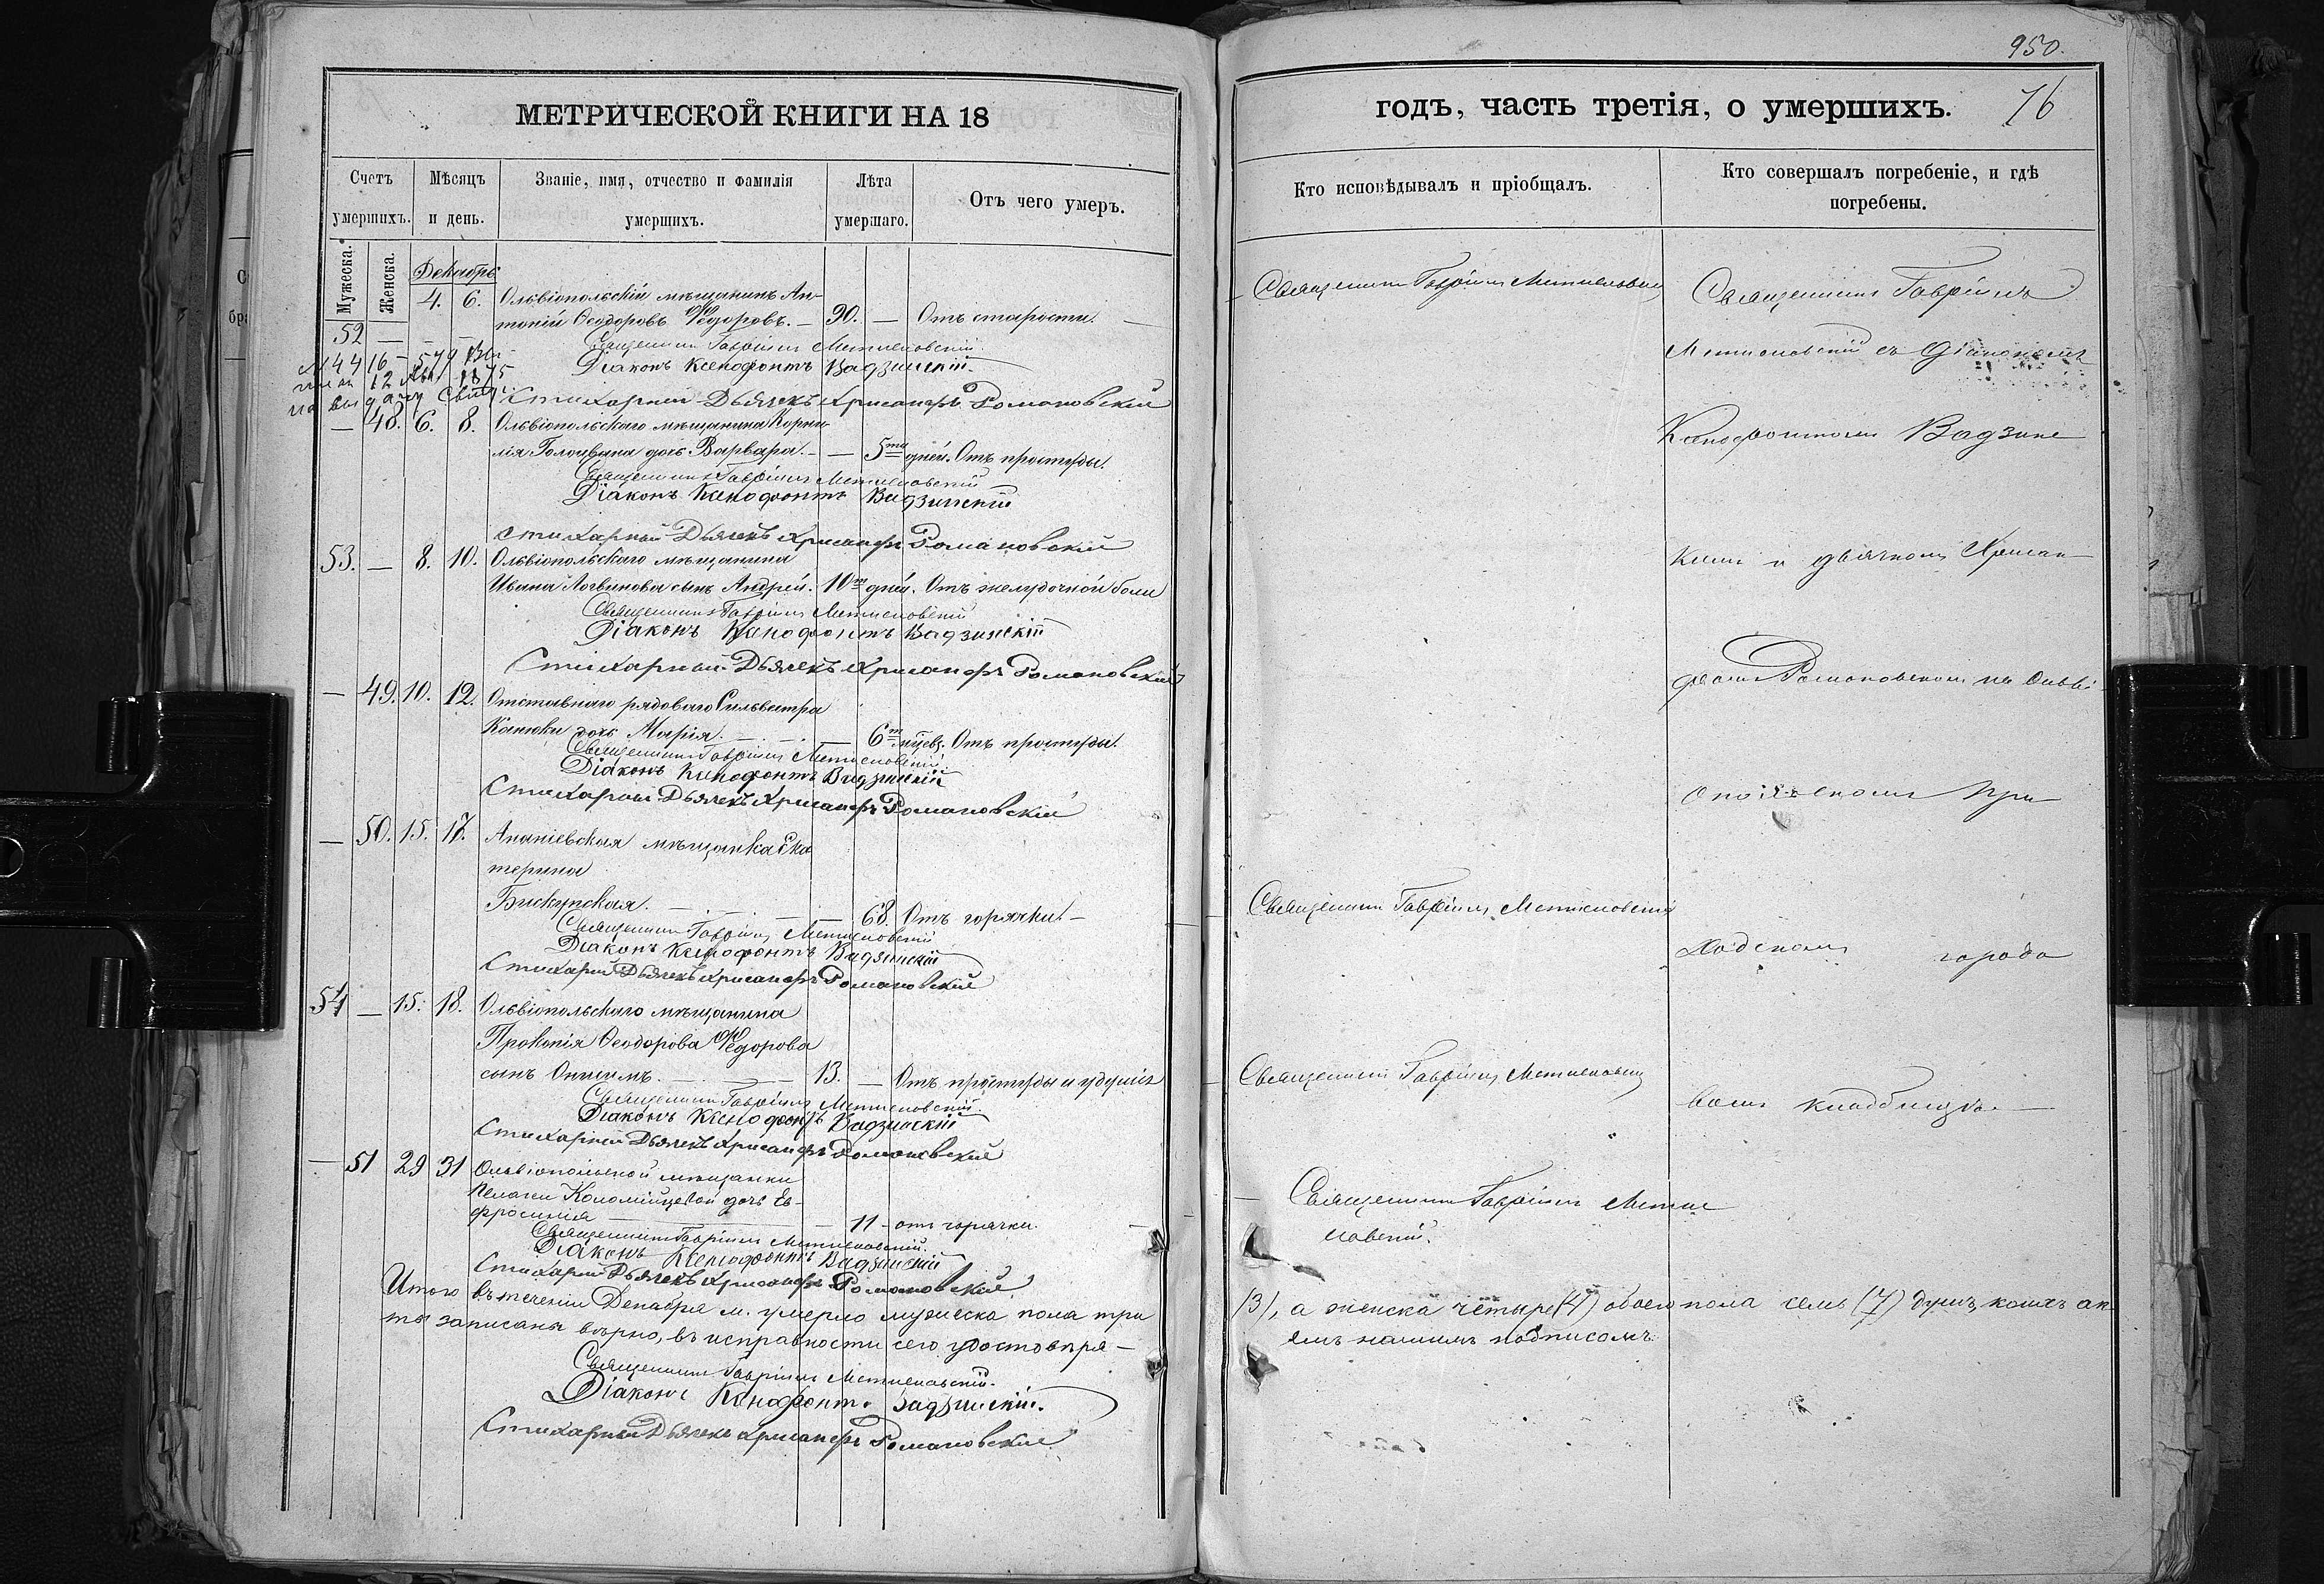 950.
МЕТРИЧЕСКОЙ КНИГИ НА 18
годъ, часть третія, о умершихъ. 76
Счетъ умершихъ.
Мѣсяцъ и день.
Званіе, имя, отчество и фамилія умершихъ.
Лѣта умершаго.
Отъ чего умеръ.
Кто исповѣдывалъ и пріобщалъ.
Кто совершалъ погребеніе, и гдѣ погребены.
Мужеска.
Женска.
Декабрь
52 — 4. 6. Ольвіопольскій мѣщанинъ Ан-
тоній Ѳеодоровъ Ѳедоровъ. — 90. — Отъ старости. —
Священникъ Гавріилъ
Діаконъ Ксенофонтъ Вадзинскій
Стихарный Дьячекъ Хрисанфъ Романовскій
— 48. 6. 8. Ольвіопольскаго мѣщанина Корни-
лія дочь Варвара. — — 5ти дней. Отъ простуды.
Священникъ Гавріилъ
Діаконъ Ксенофонтъ Вадзинскій
Стихарный Дьячекъ Хрисанфъ Романовскій
53. — 8. 10. Ольвіопольскаго мѣщанина
Ивана Логвинова сынъ Андрей. 10ти дней. Отъ желудочной боли
Священникъ Гавріилъ
Діаконъ Ксенофонтъ Вадзинскій
Стихарный Дьячекъ Хрисанфъ Романовскій
— 49. 10. 12. Отставнаго рядоваго Сильвестра
Канюки дочь Марія. — 6ти Отъ простуды.
Священникъ Гавріилъ
Діаконъ Ксенофонтъ Вадзинскій
Стихарный Дьячекъ Хрисанфъ Романовскій
— 50. 15. 17. Ананіевская мѣщанка Ека
терина
Бискупская. — 68. Отъ горячки. —
Священникъ Гавріилъ
Діаконъ Ксенофонтъ Вадзинскій
Стихарный Дьячекъ Хрисанфъ Романовскій
54 — 15. 18. Ольвіопольскаго мѣщанина
Прокопія Ѳеодорова Ѳедорова
сынъ Онисимъ. — 13. — Отъ простуды и удушія
Священникъ Гавріилъ
Діаконъ Ксенофонтъ Вадзинскій
Стихарный Дьячекъ Хрисанфъ Романовскій
— 51 29 31 Ольвіопольской мѣщанки
Пелагеи Коломійцевой дочь Ев-
фросинія — 11 - отъ горячки.
Священникъ Гавріилъ
Діаконъ Ксенофонтъ Вадзинскій
Стихарный Дьячекъ Хрисанфъ Романовскій
Итого въ теченіи Декабря м. умерло мужеска пола три
(3), а женска четыре (4) обоего пола семь (7) душъ, коихъ ак-
ты записаны вѣрно, въ исправности сего удостовѣря-
емъ нашимъ подписомъ
Священникъ Гавріилъ
Діаконъ Ксенофонтъ Вадзинскій.
Стихарный Дьячекъ Хрисанфъ Романовскій
Священникъ Гавріилъ
Священникъ Гавріилъ
Священникъ Гавріилъ
Священникъ Гавріилъ
Священникъ Гавріилъ
съ Діакономъ
Ксенофонтомъ Вадзинс
кимъ и дьячкомъ Хрисан-
фомъ Романовскимъ на Ольві-
опольскомъ при
ходскомъ города
вомъ кладбищѣ. —